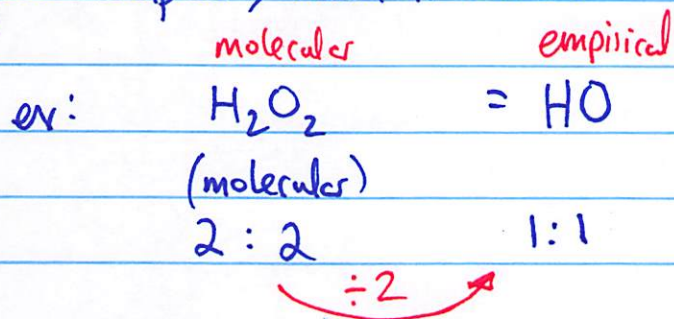 molecular empirical
ex: H₂O₂ = HO
(molecular)
2 : 2 1:1
÷2